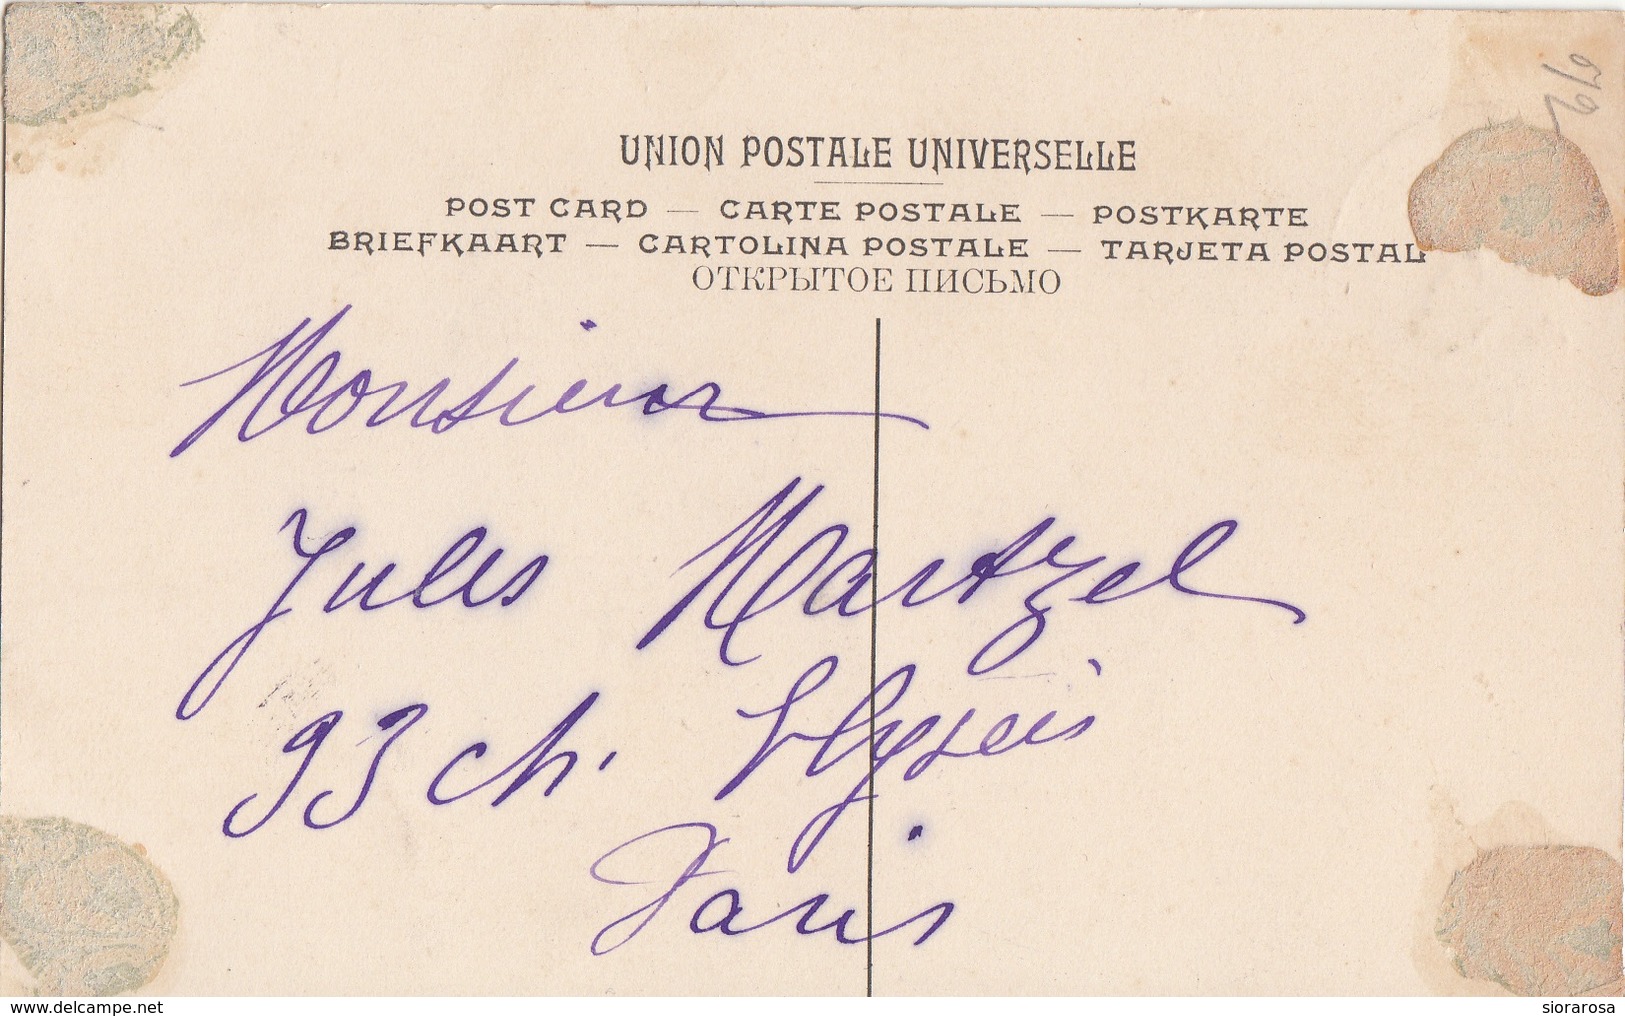 UNION POSTALE UNIVERSELLE
POST CARD — CARTE POSTALE — POSTKARTE
BRIEFKAART — CARTOLINA POSTALE — TARJETA POSTAL
ОТКРЫТОЕ ПИСЬМО
Monsieur
Jules Martzel
93 ch. Elysées
Paris
delcampe.net
siorarosa